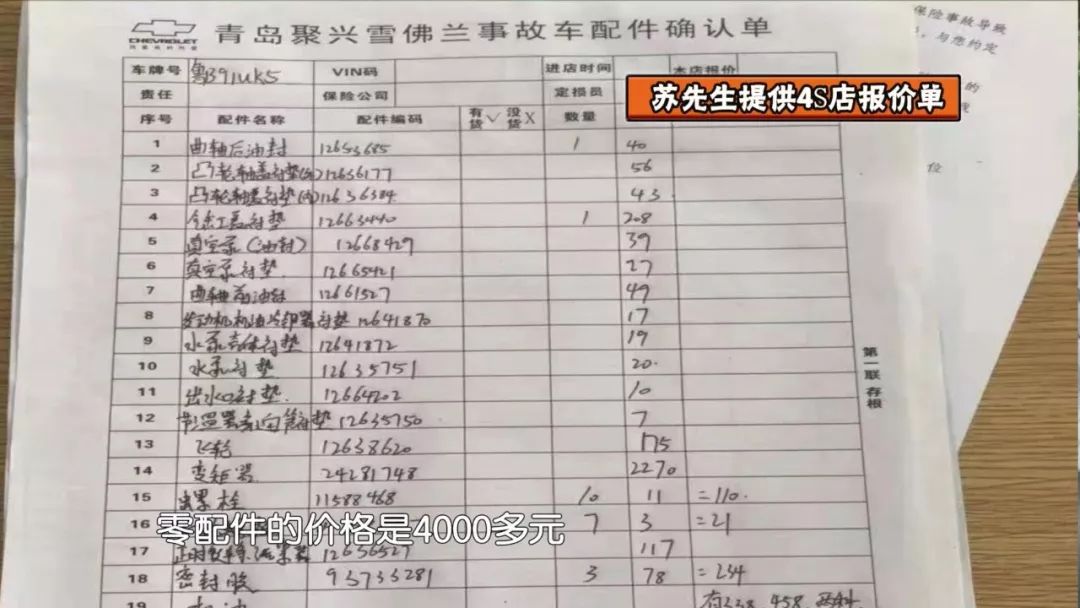 CHEVROLET
青岛聚兴雪佛兰事故车配件确认单
保险事故导致
，与您约定
的
位
苏先生提供4S店报价单
车牌号 VIN码 进店时间 本店报价
责任 保险公司 定损员
序号 配件名称 配件编码 有货√ 没货X 数量
1 曲轴后油封 12653685 1 40
2 凸轮轴盖衬垫 12636177 56
3 凸轮轴盖衬垫 12636384 43
4 衬垫 12663440 1 208
5 真空泵(油封) 12668429 39
6 真空泵衬垫 12665421 27
7 曲轴前油封 12661527 49
8 发动机机油冷却器衬垫 12641870 17
9 水泵壳体衬垫 12641872 19
10 水泵衬垫 12635751 20
11 出水口衬垫 12664202 10
12 节温器衬垫 12635750 7
13 飞轮 12638620 175
14 变矩器 24281748 2270
15 螺栓 11588468 10 11 =110
16 7 3 =21
17 12636527 117
18 密封胶 93735281 3 78 =234
19
第一联 存根
零配件的价格是4000多元